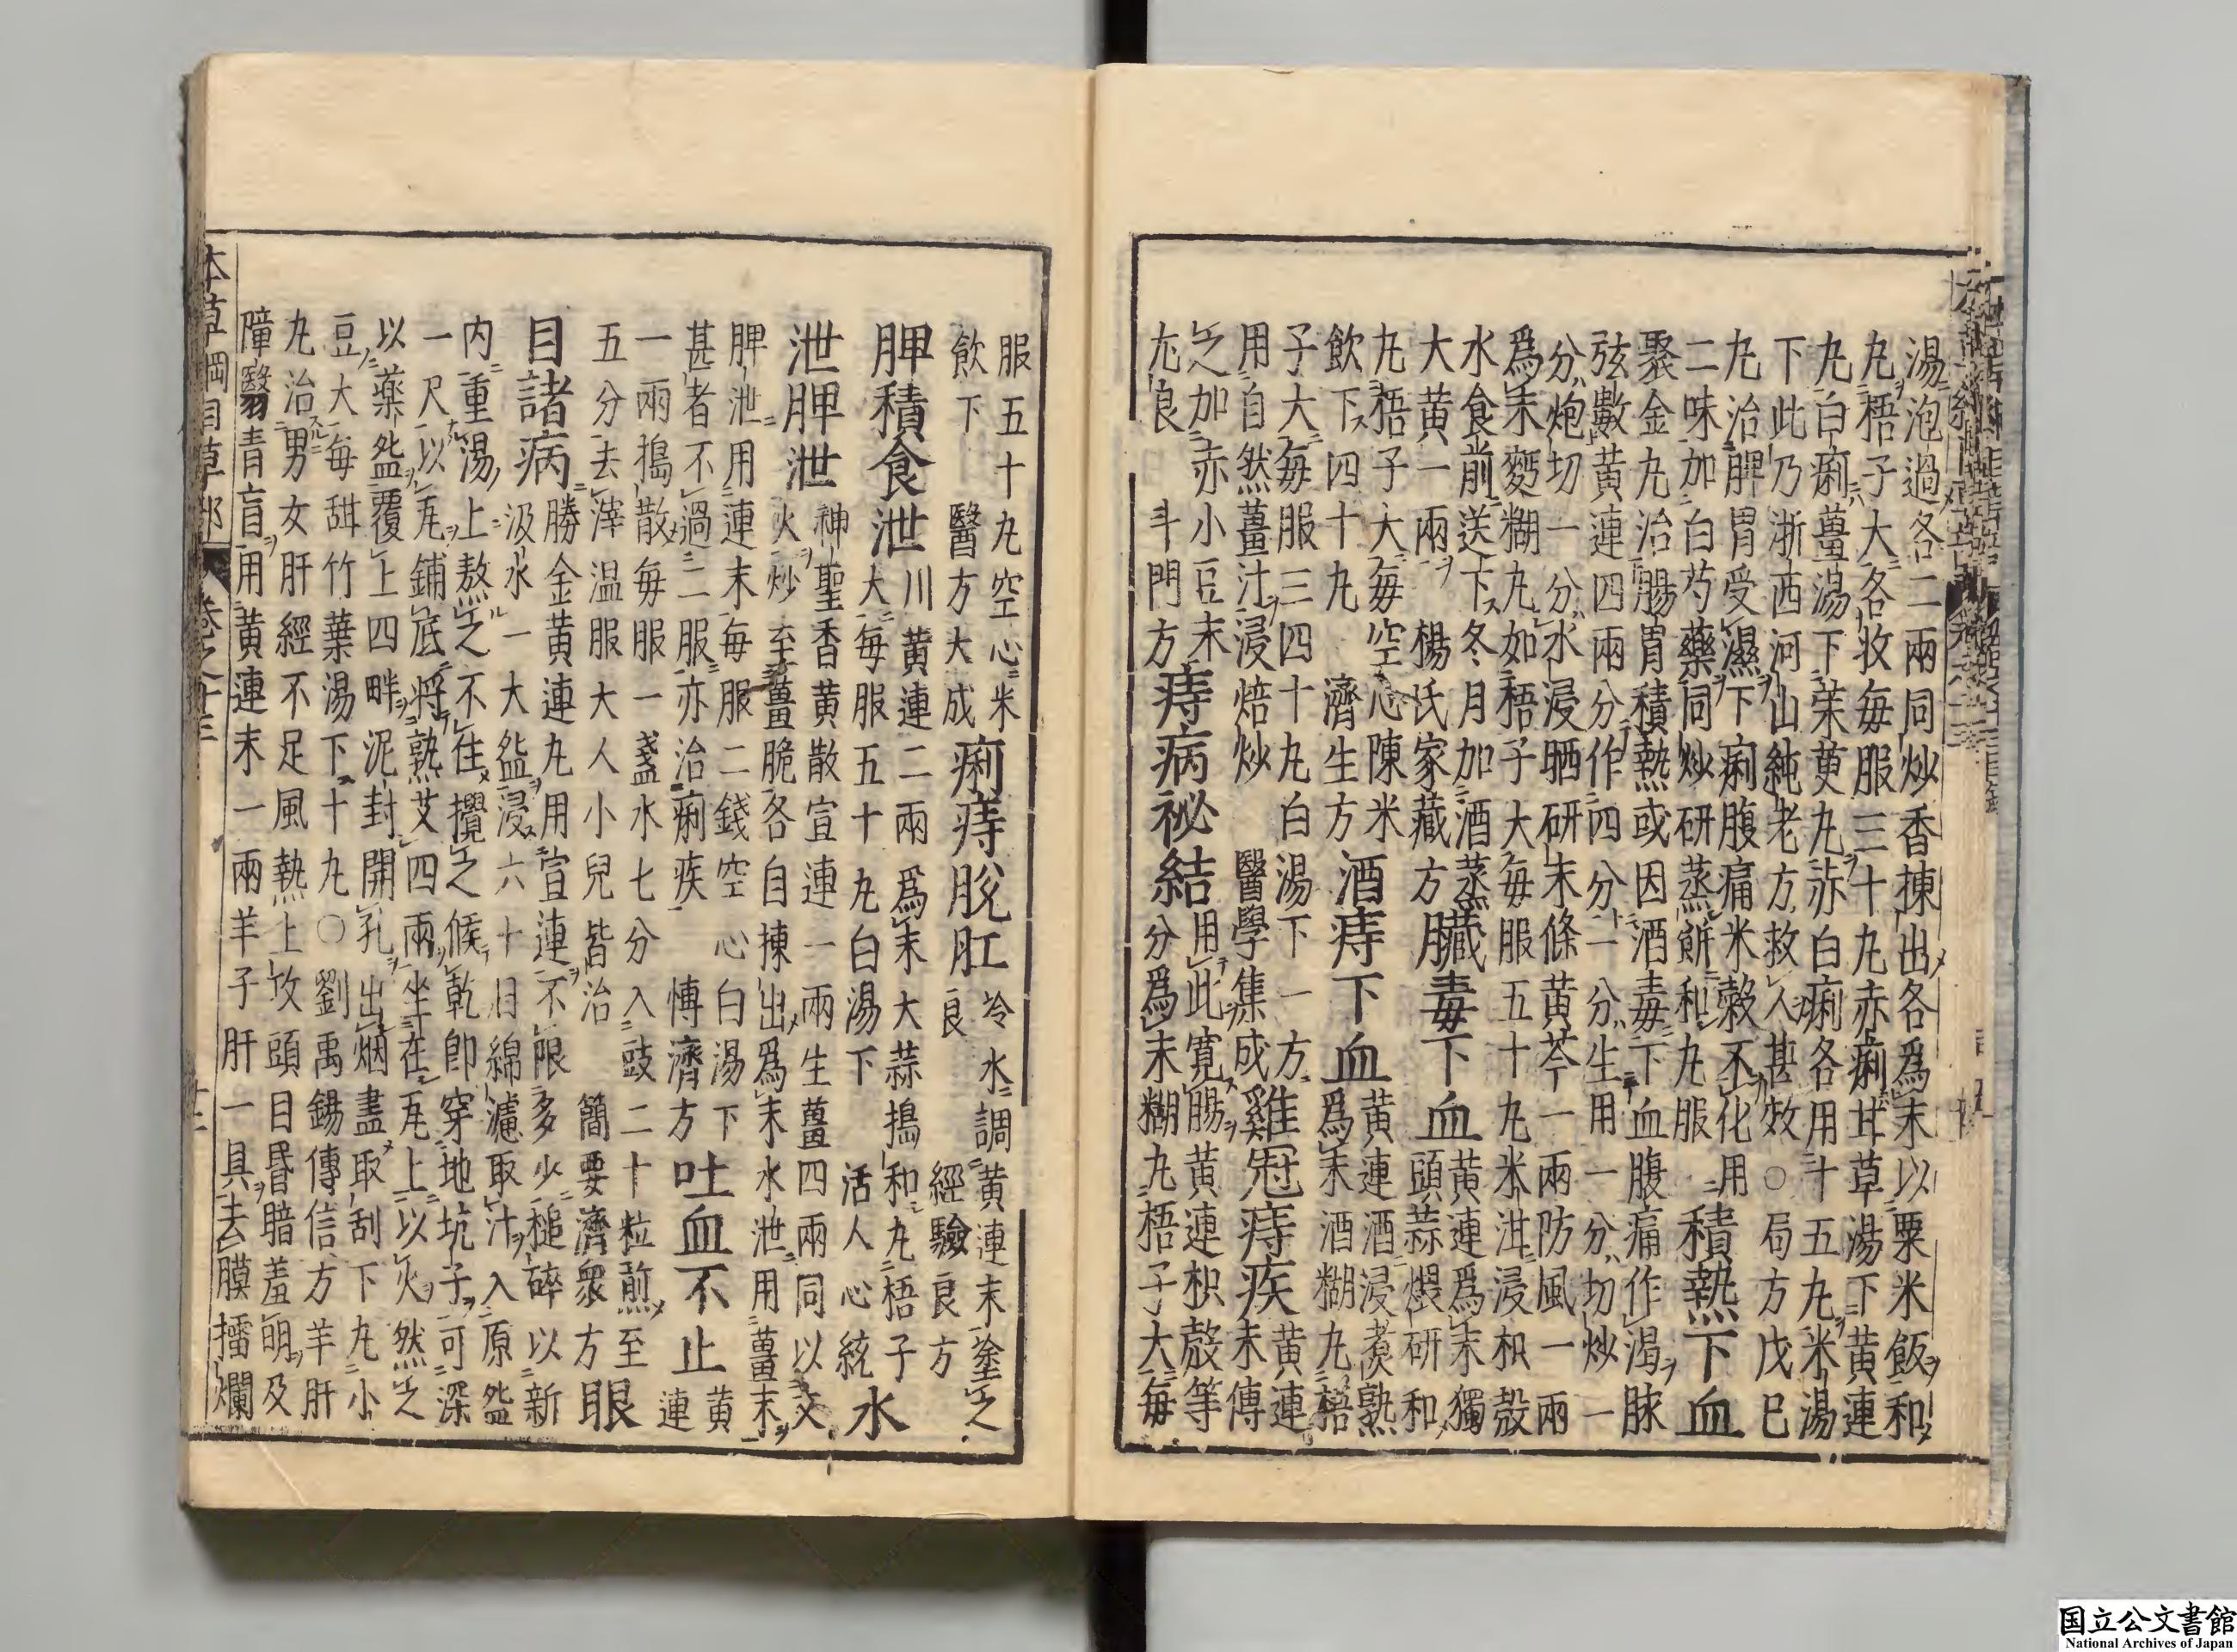 湯泡過各二兩同炒香揀出各爲末以粟米飯和
丸梧子大各收每服三十丸赤痢甘草湯下黃連
丸白痢薑湯下茱萸丸赤白痢各用十五丸米湯
下此乃浙西河山純老方救人甚效○局方戊己
丸治脾胃受濕下痢腹痛米穀不化用
二味加白芍藥同炒研蒸餅和丸服
積熱下血
聚金丸治腸胃積熱或因酒毒下血腹痛作渴脉
弦數黃連四兩分作四分一分生用一分切炒一
分炮切一分水浸晒研末條黃芩一兩防風一兩
爲末麪糊丸如梧子大每服五十丸米泔浸枳殼
水食前送下冬月加酒蒸
大黃一兩 楊氏家藏方
臟毒下血
黃連爲末獨
頭蒜煨研和
丸梧子大每空心陳米
飲下四十九 濟生方
酒痔下血
黃連酒浸煑熟
爲末酒糊丸梧
子大每服三四十丸白湯下 一方
用自然薑汁浸焙炒 醫學集成
雞冠痔疾
黃連
末傅
之加赤小豆末
尤良 斗門方
痔病祕結
用此寬腸黃連枳殼等
分爲末糊丸梧子大每
服五十丸空心米
飲下 醫方大成
痢痔脫肛
冷水調黃連末塗之
良 經驗良方
脾積食泄
川黃連二兩爲末大蒜搗和丸梧子
大每服五十丸白湯下 活人心統
水
泄脾泄
神聖香黃散宣連一兩生薑四兩同以文
火炒至薑脆各自揀出爲末水泄用薑末
脾泄用連末每服二錢空心白湯下
甚者不過二服亦治痢疾 博濟方
吐血不止
黃
連
一兩搗散每服一盞水七分入豉二十粒煎至
五分去滓温服大人小兒皆治 簡要濟衆方
眼
目諸病
勝金黃連丸用宣連不限多少槌碎以新
汲水一大盌浸六十日綿濾取汁入原盌
内重湯上熬之不住攪之候乾卽穿地坑子可深
一尺以瓦鋪底將熟艾四兩坐在瓦上以火然之
以藥盌覆上四畔泥封開孔出烟盡取刮下丸小
豆大每甜竹葉湯下十丸○劉禹錫傳信方羊肝
丸治男女肝經不足風熱上攻頭目昏暗羞明及
障翳青盲用黃連末一兩羊子肝一具去膜擂爛
本草綱目草部 卷之十三 十二
国立公文書館
National Archives of Japan